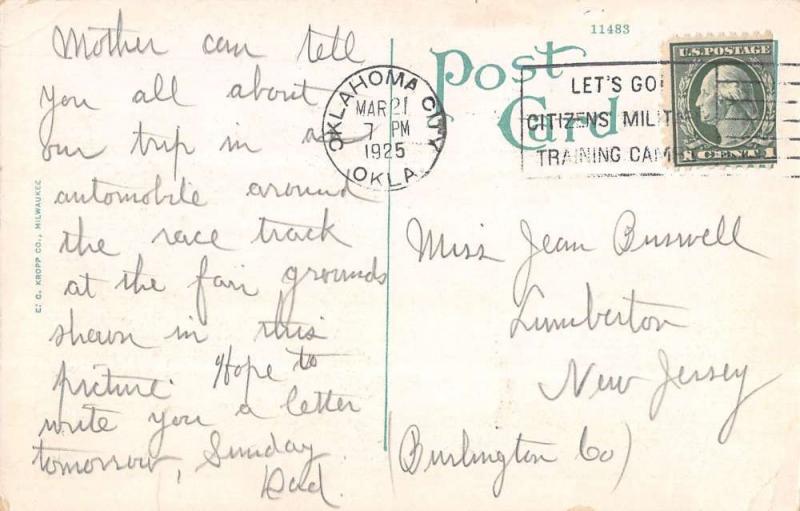 Mother can tell
you all about
our trip in a
automobile around
the race track
at the fair grounds
shown in this
picture. Hope to
write you a letter
tomorrow, Sunday
Dad.
E. C. KROPP CO., MILWAUKEE
11483
Post
Card
OKLAHOMA CITY
MAR 21
7 PM
1925
OKLA
LET'S GO!
CITIZENS' MILIT
TRAINING CAM
U.S. POSTAGE
1 CENT 1
Miss Jean Buswell
Lumberton
New Jersey
(Burlington Co)